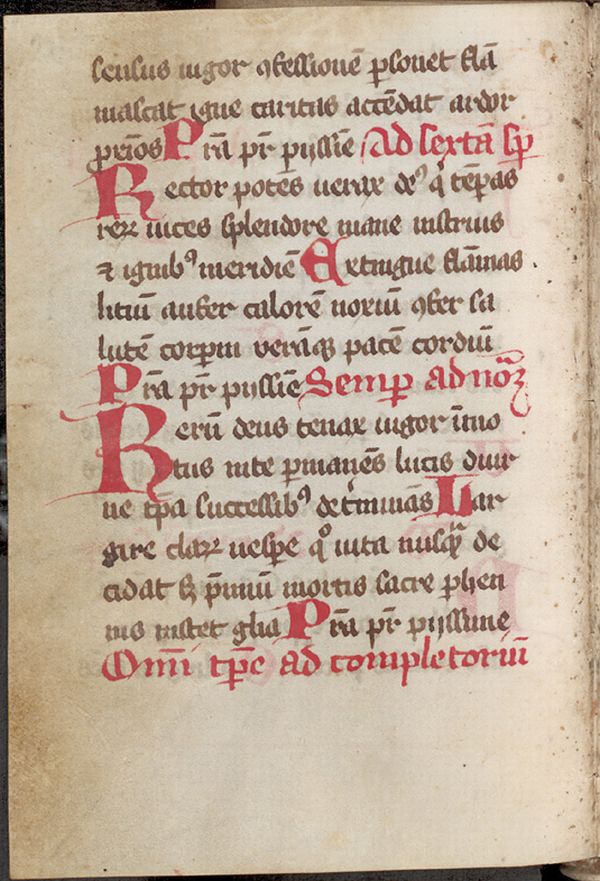 sensus uigor ꝯfessionē ꝑsonet flā
mascat igne caritas accēdat ardor
ꝓxīos Prā pr̄ pijssīe Ad sextā sp̄
Rector potēs uerax deꝰ q̄ tēpas
reꝝ uices splendore mane instruis
⁊ ignibꝰ meridiē Extingue flāmas
litiū aufer calorē noxiū ꝯfer sa
lutē corpm̄ verāqꝫ pacē cordiū
Prā pr̄ pijssīe Semꝑ ad nōꝫ
Rerū deus tenax uigor īmo
tus in te ꝑmanēs lucis diur
ne tp̄a successibꝰ det͛minās Lar
gire claꝝ uesꝑe qͦ uita nusqᷓ de
cidat sꝫ p̄miū mortis sacre ꝑhen
nis instet gl̄ia Prā pr̄ pijssime
Omī tp̄e ad completoriū